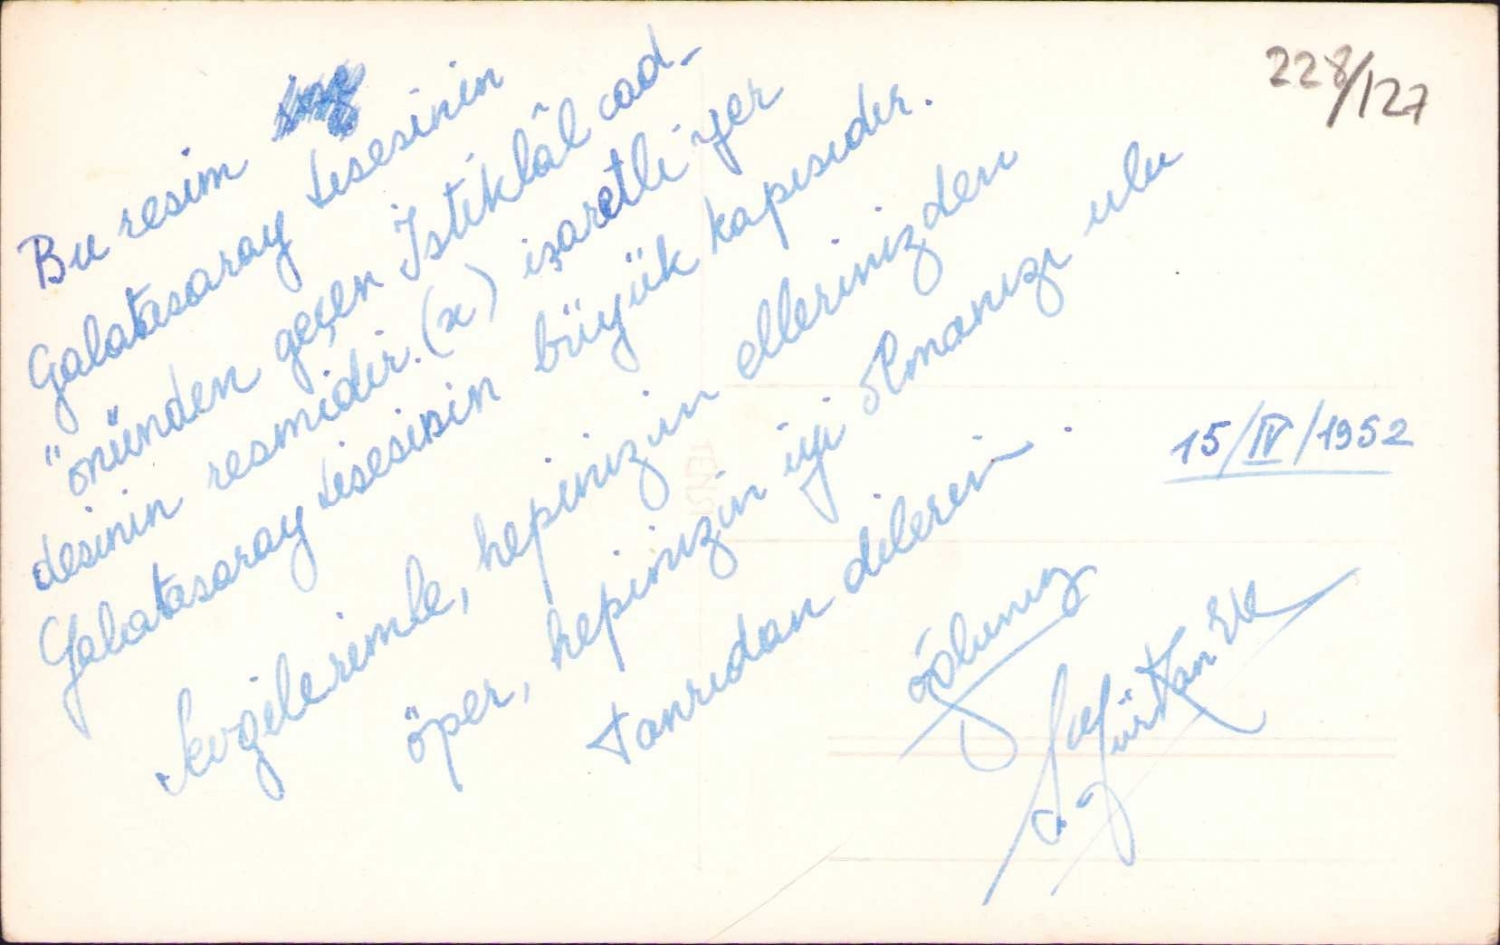 228/127
Bu resim
Galatasaray Lisesinin
önünden geçen İstiklâl cad-
desinin resmidir. (x) işaretli yer
Galatasaray Lisesinin büyük kapısıdır.
Sevgilerimle, hepinizin ellerinizden
öper, hepinizin iyi olmanızı ulu
Tanrıdan dilerim.
15/IV/1952
oğlunuz